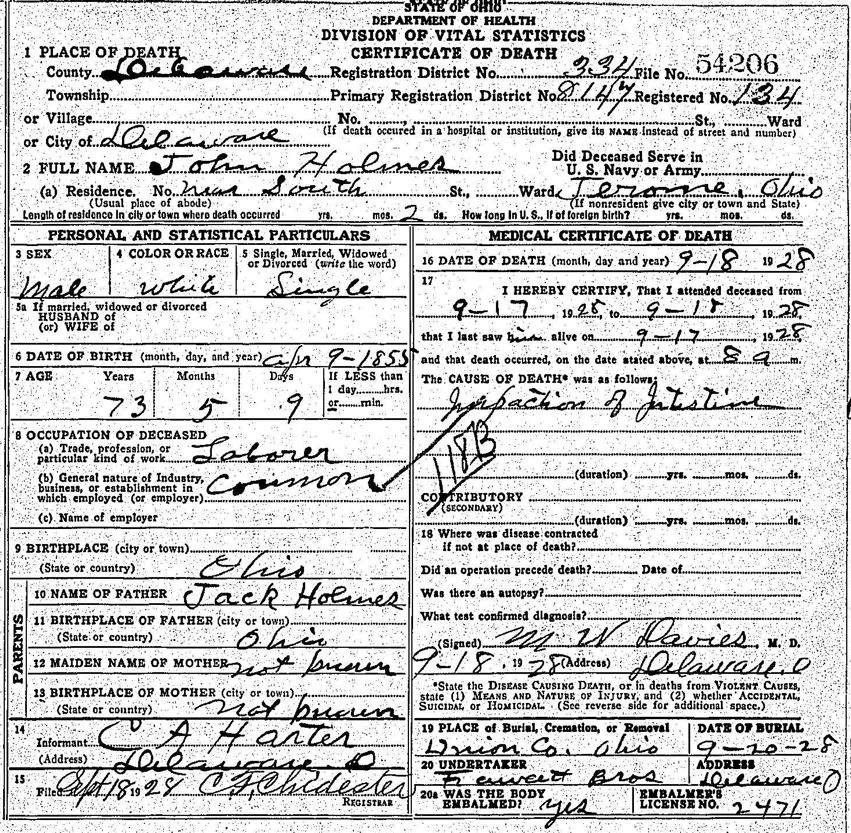 STATE OF OHIO
DEPARTMENT OF HEALTH
DIVISION OF VITAL STATISTICS
CERTIFICATE OF DEATH
1 PLACE OF DEATH
County Delaware Registration District No. 334 File No. 54206
Township Primary Registration District No. 8147 Registered No. 134
or Village No. , St., Ward
or City of Delaware (If death occured in a hospital or institution, give its NAME instead of street and number)
2 FULL NAME John Holmes Did Deceased Serve in U. S. Navy or Army
(a) Residence. No. near South St., Ward, Jerome, Ohio
(Usual place of abode) (If nonresident give city or town and State)
Length of residence in city or town where death occurred yrs. mos. 2 ds. How long in U. S., if of foreign birth? yrs. mos. ds.
PERSONAL AND STATISTICAL PARTICULARS
3 SEX 4 COLOR OR RACE 5 Single, Married, Widowed or Divorced (write the word)
Male White Single
5a If married, widowed or divorced
HUSBAND of
(or) WIFE of
6 DATE OF BIRTH (month, day, and year) Apr 9-1855
7 AGE Years Months Days If LESS than
1 day hrs.
or min.
73 5 9
8 OCCUPATION OF DECEASED
(a) Trade, profession, or
particular kind of work Laborer
(b) General nature of Industry,
business, or establishment in
which employed (or employer) Common
(c) Name of employer
9 BIRTHPLACE (city or town)
(State or country) Ohio
PARENTS
10 NAME OF FATHER Jack Holmes
11 BIRTHPLACE OF FATHER (city or town)
(State or country) Ohio
12 MAIDEN NAME OF MOTHER not known
13 BIRTHPLACE OF MOTHER (city or town)
(State or country) not known
14
Informant C A Harter
(Address) Delaware. O
15
Filed Sept 18 1928 C F Chidester
REGISTRAR
MEDICAL CERTIFICATE OF DEATH
16 DATE OF DEATH (month, day and year) 9-18 1928
17
I HEREBY CERTIFY, That I attended deceased from
9-17, 1928, to 9-18, 1928,
that I last saw him alive on 9-17, 1928,
and that death occurred, on the date stated above, at 8 a m.
The CAUSE OF DEATH* was as follows:
Impaction of Intestine
118B
(duration) yrs. mos. ds.
CONTRIBUTORY
(SECONDARY)
(duration) yrs. mos. ds.
18 Where was disease contracted
if not at place of death?
Did an operation precede death? Date of
Was there an autopsy?
What test confirmed diagnosis?
(Signed) M W Davies, M. D.
9-18. 1928 (Address) Delaware. O
*State the DISEASE CAUSING DEATH, or in deaths from VIOLENT CAUSES,
state (1) MEANS AND NATURE OF INJURY, and (2) whether ACCIDENTAL,
SUICIDAL or HOMICIDAL. (See reverse side for additional space.)
19 PLACE of Burial, Cremation, or Removal DATE OF BURIAL
Union Co. Ohio 9-20-28
20 UNDERTAKER ADDRESS
Bros Delaware O
20a WAS THE BODY
EMBALMED? yes
EMBALMER'S
LICENSE NO. 2471